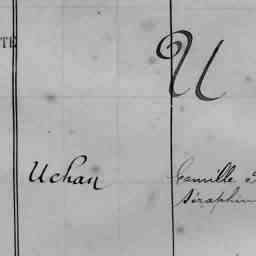 TÉ
U
Uchan Camille
Séraphin